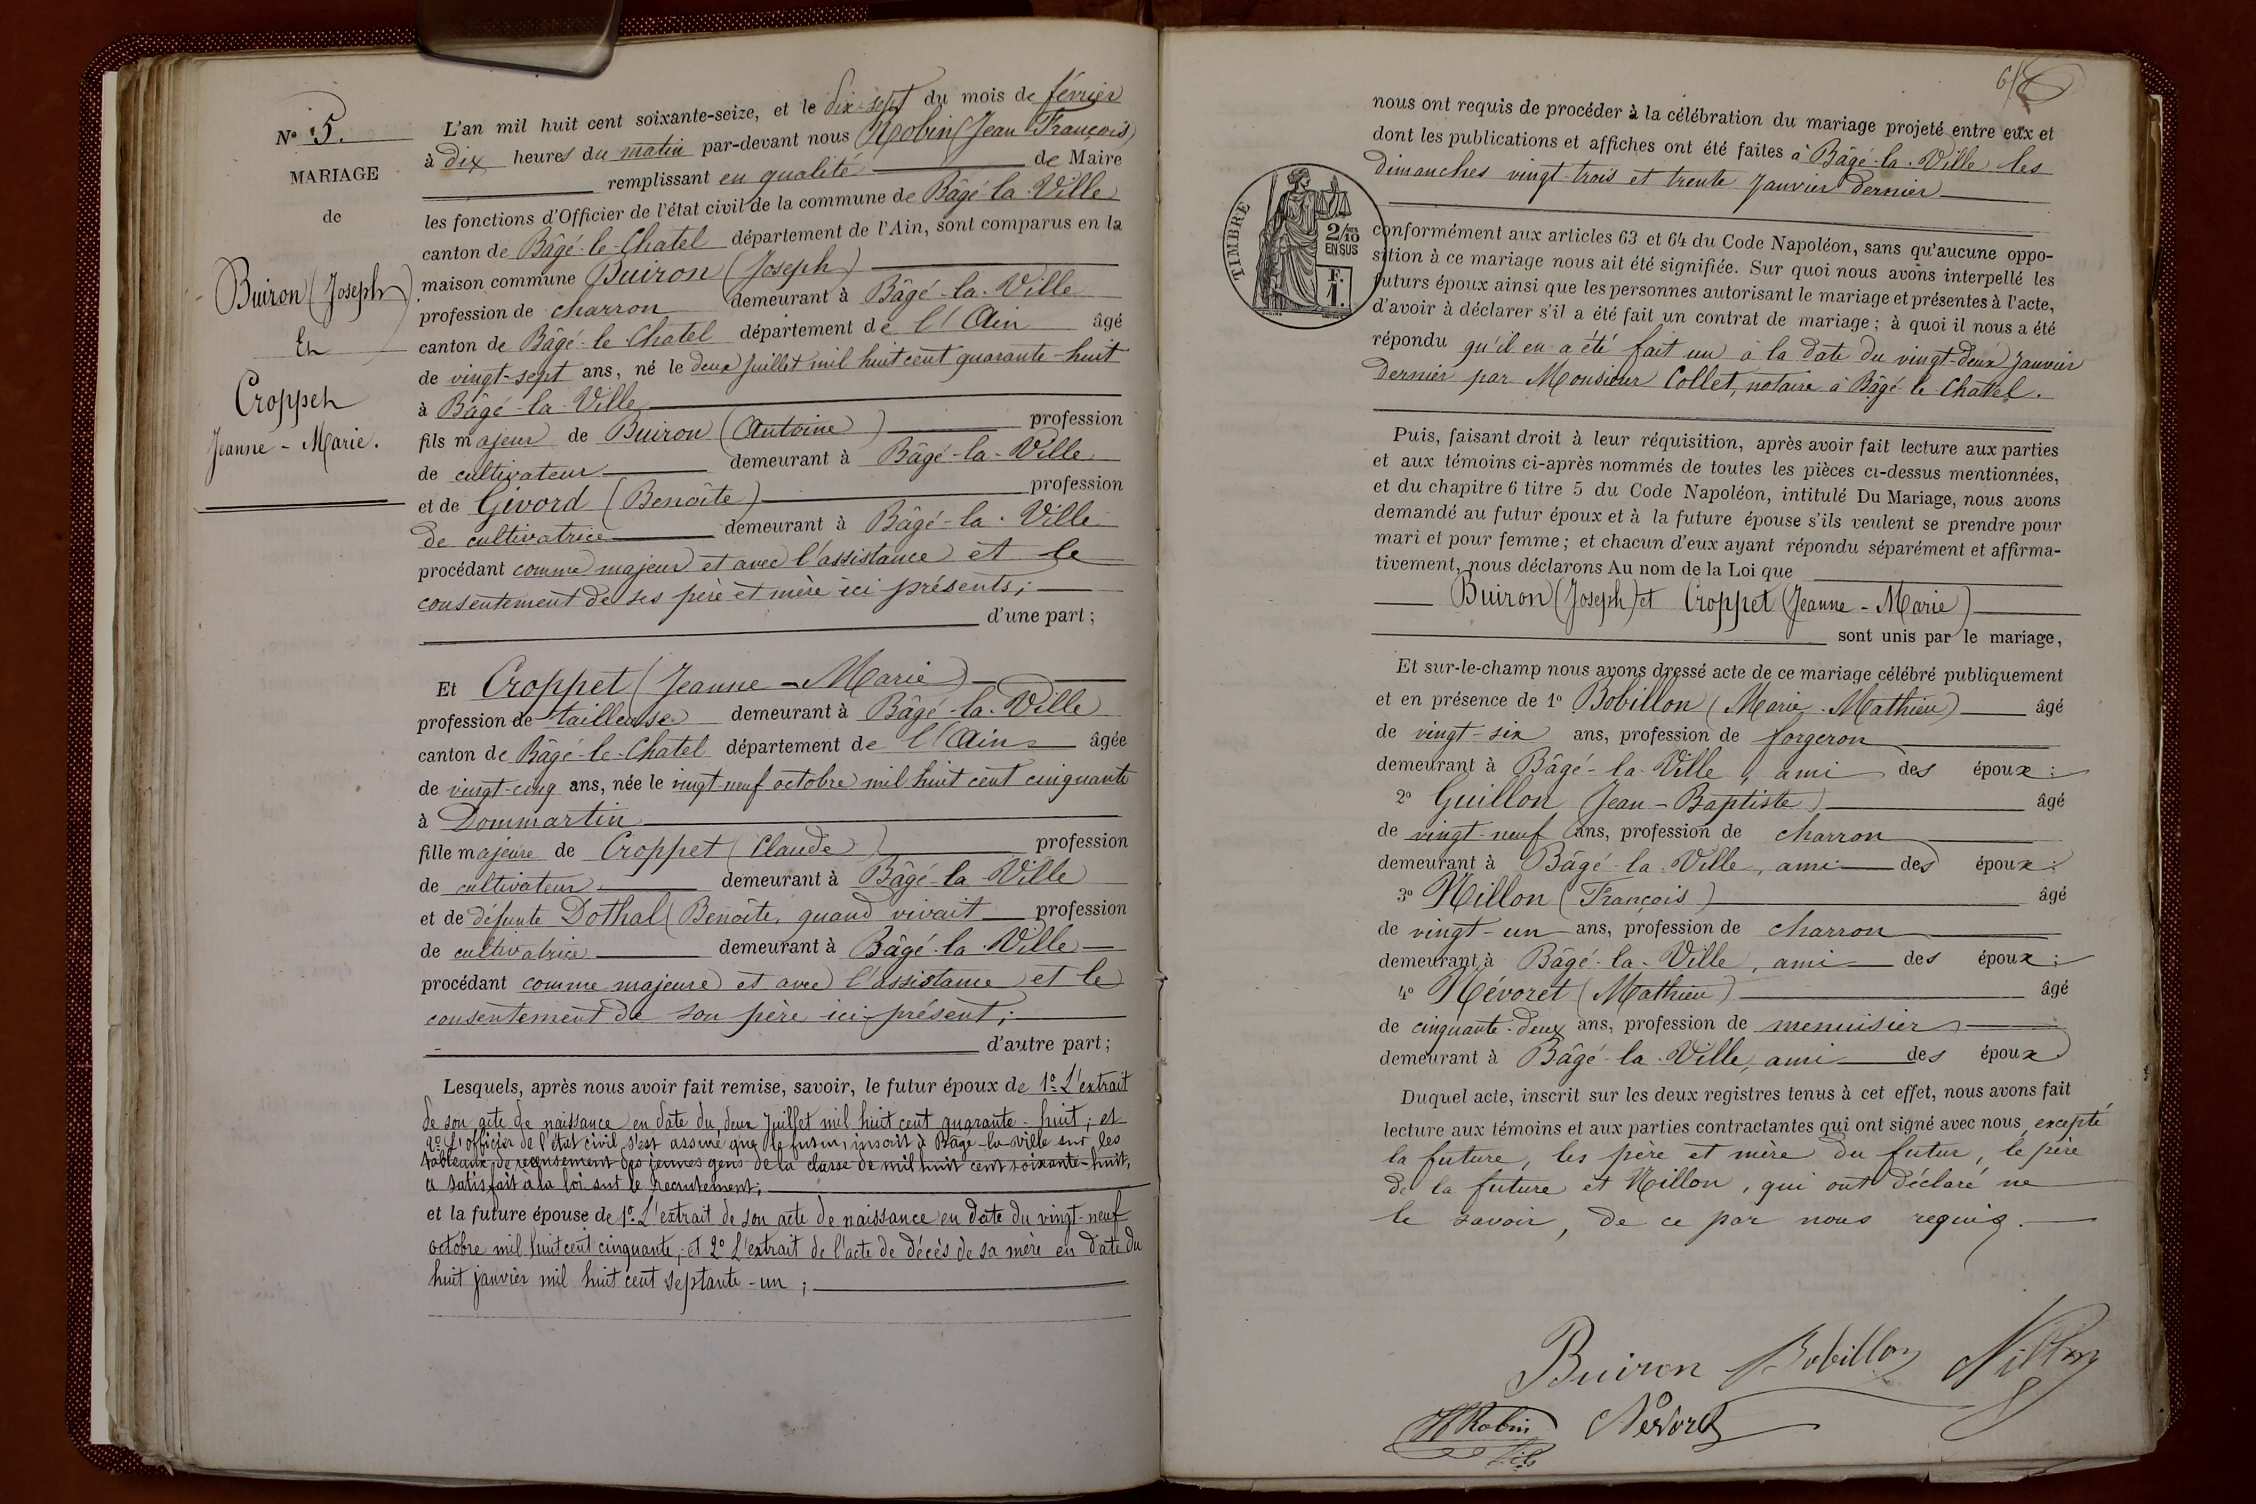 N° 5.
MARIAGE
de
Buiron (Joseph)
Et
Croppet
Jeanne-Marie.
L'an mil huit cent soixante-seize, et le dix-sept du mois de février
à dix heures du matin par-devant nous Robin (Jean François)
remplissant en qualité de Maire
les fonctions d'Officier de l'état civil de la commune de Bâgé-la-Ville
canton de Bâgé-le-Chatel département de l'Ain, sont comparus en la
maison commune Buiron (Joseph)
profession de charron demeurant à Bâgé-la-Ville
canton de Bâgé-le-Chatel département de l'Ain âgé
de vingt-sept ans, né le deux juillet mil huit cent quarante-huit
à Bâgé-la-Ville
fils majeur de Buiron (Antoine) profession
de cultivateur demeurant à Bâgé-la-Ville
et de Givord (Benoîte) profession
de cultivatrice demeurant à Bâgé-la-Ville
procédant comme majeur et avec l'assistance et le
consentement de ses père et mère ici présents;
d'une part;
Et Croppet (Jeanne-Marie)
profession de tailleuse demeurant à Bâgé-la-Ville
canton de Bâgé-le-Chatel département de l'Ain âgée
de vingt-cinq ans, née le vingt-neuf octobre mil huit cent cinquante
à Dommartin
fille majeure de Croppet (Claude) profession
de cultivateur demeurant à Bâgé-la-Ville
et de défunte Dothal (Benoîte, quand vivait profession
de cultivatrice demeurant à Bâgé-la-Ville
procédant comme majeure et avec l'assistance et le
consentement de son père ici présent;
d'autre part;
Lesquels, après nous avoir fait remise, savoir, le futur époux de 1° L'extrait
de son acte de naissance en date du deux juillet mil huit cent quarante-huit; et
2° L'officier de l'état civil s'est assuré que le futur, inscrit à Bâgé-la-Ville sur les
tableaux de recensement des jeunes gens de la classe de mil huit cent soixante-huit,
a satisfait à la loi sur le recrutement;
et la future épouse de 1°. L'extrait de son acte de naissance en date du vingt-neuf
octobre mil huit cent cinquante, et 2° L'extrait de l'acte de décès de sa mère en date du
huit janvier mil huit cent septante-un;
TIMBRE
2/10
EN SUS
F.
1.
nous ont requis de procéder à la célébration du mariage projeté entre eux et
dont les publications et affiches ont été faites à Bâgé-la-Ville les
dimanches vingt-trois et trente janvier dernier
conformément aux articles 63 et 64 du Code Napoléon, sans qu'aucune oppo-
sition à ce mariage nous ait été signifiée. Sur quoi nous avons interpellé les
futurs époux ainsi que les personnes autorisant le mariage et présentes à l'acte,
d'avoir à déclarer s'il a été fait un contrat de mariage; à quoi il nous a été
répondu qu'il en a été fait un à la date du vingt-deux janvier
dernier par Monsieur Collet, notaire à Bâgé-le-Chatel.
Puis, faisant droit à leur réquisition, après avoir fait lecture aux parties
et aux témoins ci-après nommés de toutes les pièces ci-dessus mentionnées,
et du chapitre 6 titre 5 du Code Napoléon, intitulé Du Mariage, nous avons
demandé au futur époux et à la future épouse s'ils veulent se prendre pour
mari et pour femme; et chacun d'eux ayant répondu séparément et affirma-
tivement, nous déclarons Au nom de la Loi que
Buiron (Joseph) et Croppet (Jeanne-Marie)
sont unis par le mariage,
Et sur-le-champ nous avons dressé acte de ce mariage célébré publiquement
et en présence de 1° Bobillon (Marie-Mathieu) âgé
de vingt-six ans, profession de forgeron
demeurant à Bâgé-la-Ville, ami des époux:
2° Guillon (Jean-Baptiste) âgé
de vingt-neuf ans, profession de charron
demeurant à Bâgé-la-Ville, ami des époux:
3° Nillon (François) âgé
de vingt-un ans, profession de charron
demeurant à Bâgé-la-Ville, ami des époux:
4° Névoret (Mathieu) âgé
de cinquante-deux ans, profession de menuisier
demeurant à Bâgé-la-Ville, ami des époux
Duquel acte, inscrit sur les deux registres tenus à cet effet, nous avons fait
lecture aux témoins et aux parties contractantes qui ont signé avec nous, excepté
la future, les père et mère du futur, le père
de la future et Nillon, qui ont déclaré ne
le savoir, de ce par nous requis.
Buiron Bobillon
Robin Névoret